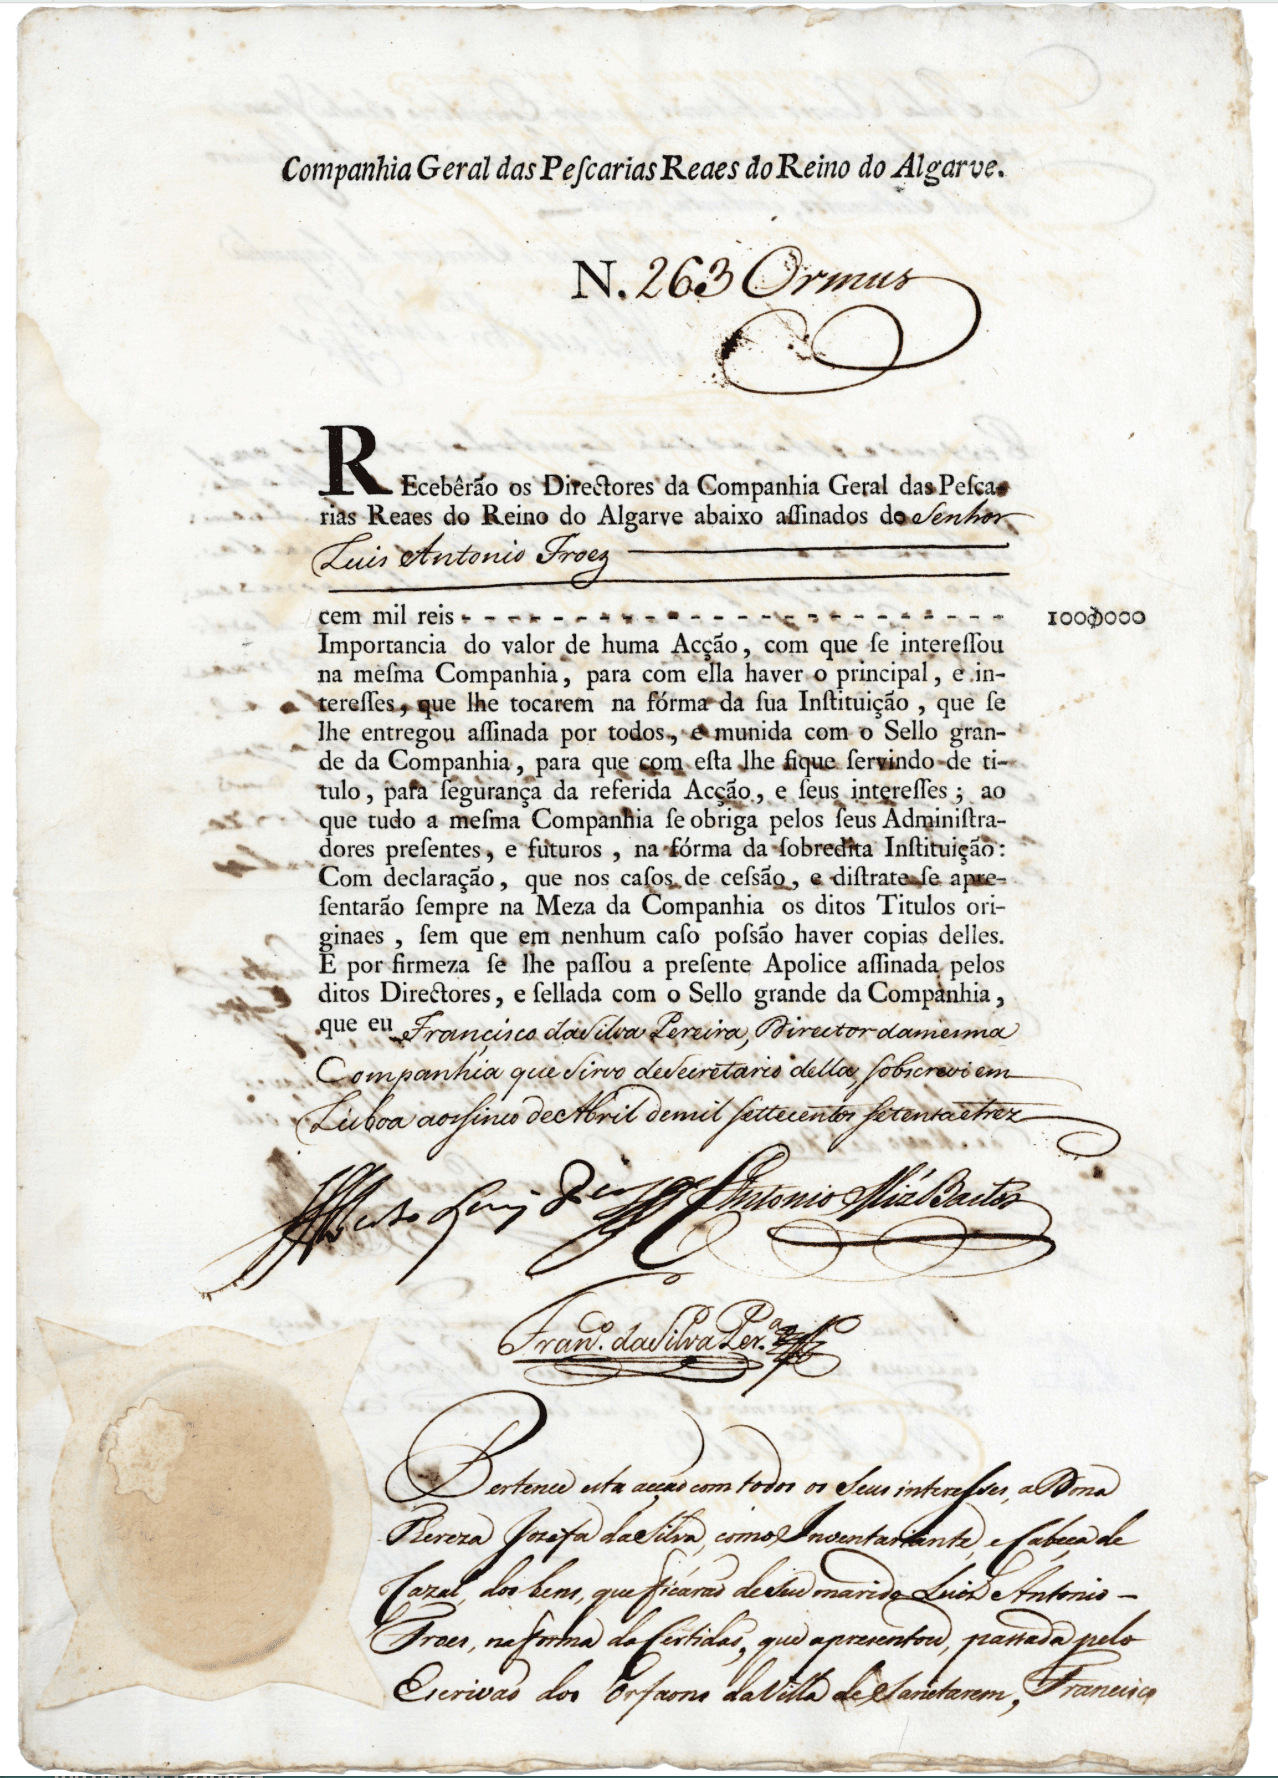 Companhia Geral das Peſcarias Reaes do Reino do Algarve.
N. 263 Ormus
REcebêrão os Directores da Companhia Geral das Peſca-
rias Reaes do Reino do Algarve abaixo aſſinados do Senhor
Luis Antonio Froez
cem mil reis - - - - - - - - - - - - - - - - - - 100$000
Importancia do valor de huma Acção, com que ſe intereſſou
na meſma Companhia, para com ella haver o principal, e in-
tereſſes, que lhe tocarem na fórma da ſua Inſtituição, que ſe
lhe entregou aſſinada por todos, e munida com o Sello gran-
de da Companhia, para que com eſta lhe fique ſervindo de ti-
tulo, para ſegurança da referida Acção, e ſeus intereſſes; ao
que tudo a meſma Companhia ſe obriga pelos ſeus Adminiſtra-
dores preſentes, e futuros, na fórma da ſobredita Inſtituição:
Com declaração, que nos caſos de ceſſão, e diſtrate ſe apre-
ſentarão ſempre na Meza da Companhia os ditos Titulos ori-
ginaes, ſem que em nenhum caſo poſsão haver copias delles.
E por firmeza ſe lhe paſſou a preſente Apolice aſſinada pelos
ditos Directores, e ſellada com o Sello grande da Companhia,
que eu Francisco da Silva Pereira, Director da mesma
Companhia que Sirvo de Secretario della, ſobscrevi em
Lisboa aos ſinco de Abril de mil ſettecentos ſetenta e trez
Antonio Miz' Bastos
Franco. da Silva Per.a
Pertence esta acção com todos os Seus interesses, a Dona
Tereza Jozefa da Silva, como Inventariante, e Cabeça de
Cazal, dos bens, que ficárão de Seu marido Luis Antonio -
Froes, na forma da Certidão, que apresentou, passada pelo
Escrivão dos Orfaons da Villa de Santarem, Francisco